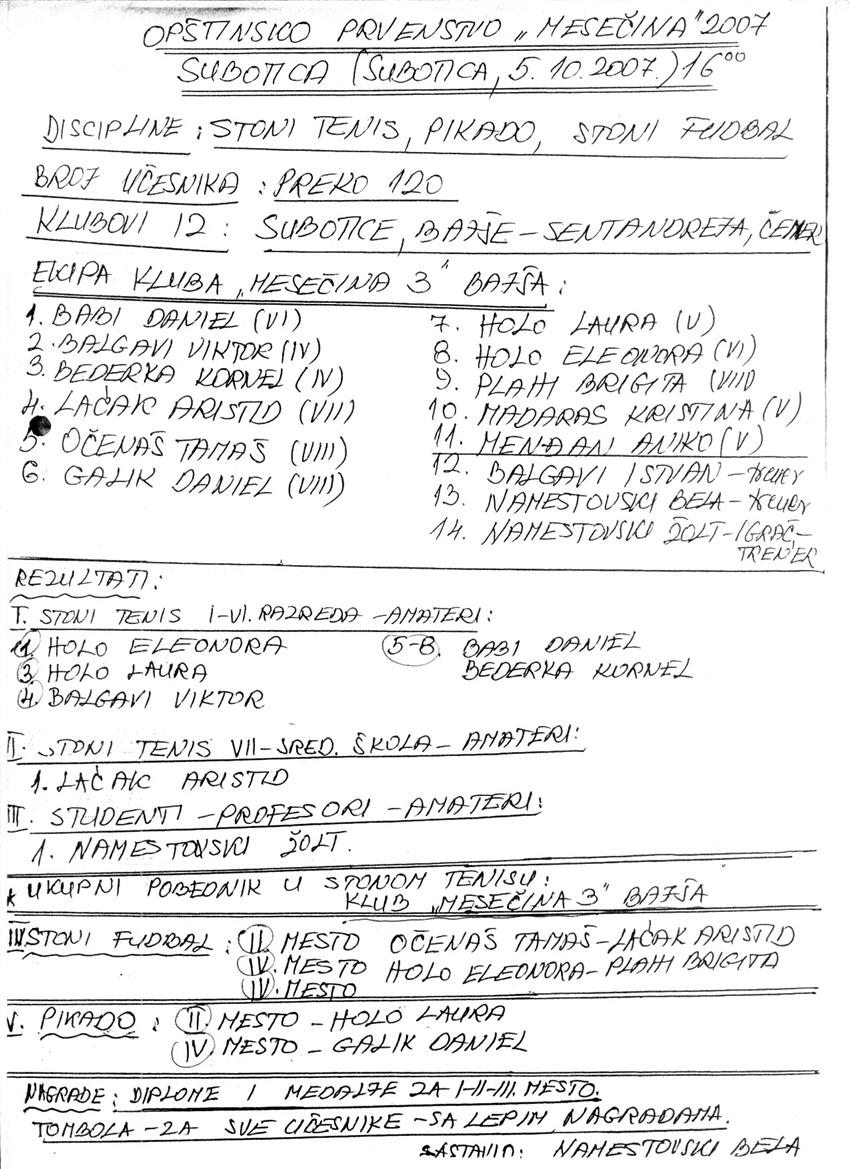 OPŠTINSKO PRVENSTVO „MESEČINA" 2007
SUBOTICA (SUBOTICA, 5.10.2007.) 16⁰⁰
DISCIPLINE : STONI TENIS, PIKADO, STONI FUDBAL
BROJ UČESNIKA : PREKO 120
KLUBOVI 12 : SUBOTICE, BAJŠE - SENTANDREJA,
EKIPA KLUBA „MESEČINA 3" BAJŠA :
1. BABI DANIEL (VI)
2. BALGAVI VIKTOR (IV)
3. BEDERKA KORNEL (IV)
4. LAČAK ARISTID (VII)
5. OČENAŠ TAMAŠ (VIII)
6. GALIK DANIEL (VIII)
7. HOLO LAURA (V)
8. HOLO ELEONORA (VI)
9. PLAHI BRIGITA (VIII)
10. MADARAS KRISTINA (V)
11. ANIKO (V)
12. BALGAVI ISTVAN - trener
13. NAMESTOVSKI BELA - trener
14. NAMESTOVSKI ŽOLT - IGRAČ -
TRENER
REZULTATI :
I. STONI TENIS I-VI. RAZREDA - AMATERI :
1 HOLO ELEONORA
3 HOLO LAURA
4 BALGAVI VIKTOR
5-8. BABI DANIEL
BEDERKA KORNEL
II. STONI TENIS VII - SRED. ŠKOLA - AMATERI :
1. LAČAK ARISTID
III. STUDENTI - PROFESORI - AMATERI :
1. NAMESTOVSKI ŽOLT.
* UKUPNI POBEDNIK U STONOM TENISU :
KLUB „MESEČINA 3" BAJŠA
IV STONI FUDBAL : II. MESTO OČENAŠ TAMAŠ - LAČAK ARISTID
IV. MESTO HOLO ELEONORA - PLAHI BRIGITA
IV. MESTO
V. PIKADO : II MESTO - HOLO LAURA
IV MESTO - GALIK DANIEL
NAGRADE : DIPLOME I MEDALJE ZA I-II-III. MESTO.
TOMBOLA - ZA SVE UČESNIKE - SA LEPIM NAGRADAMA.
SASTAVIO : NAMESTOVSKI BELA